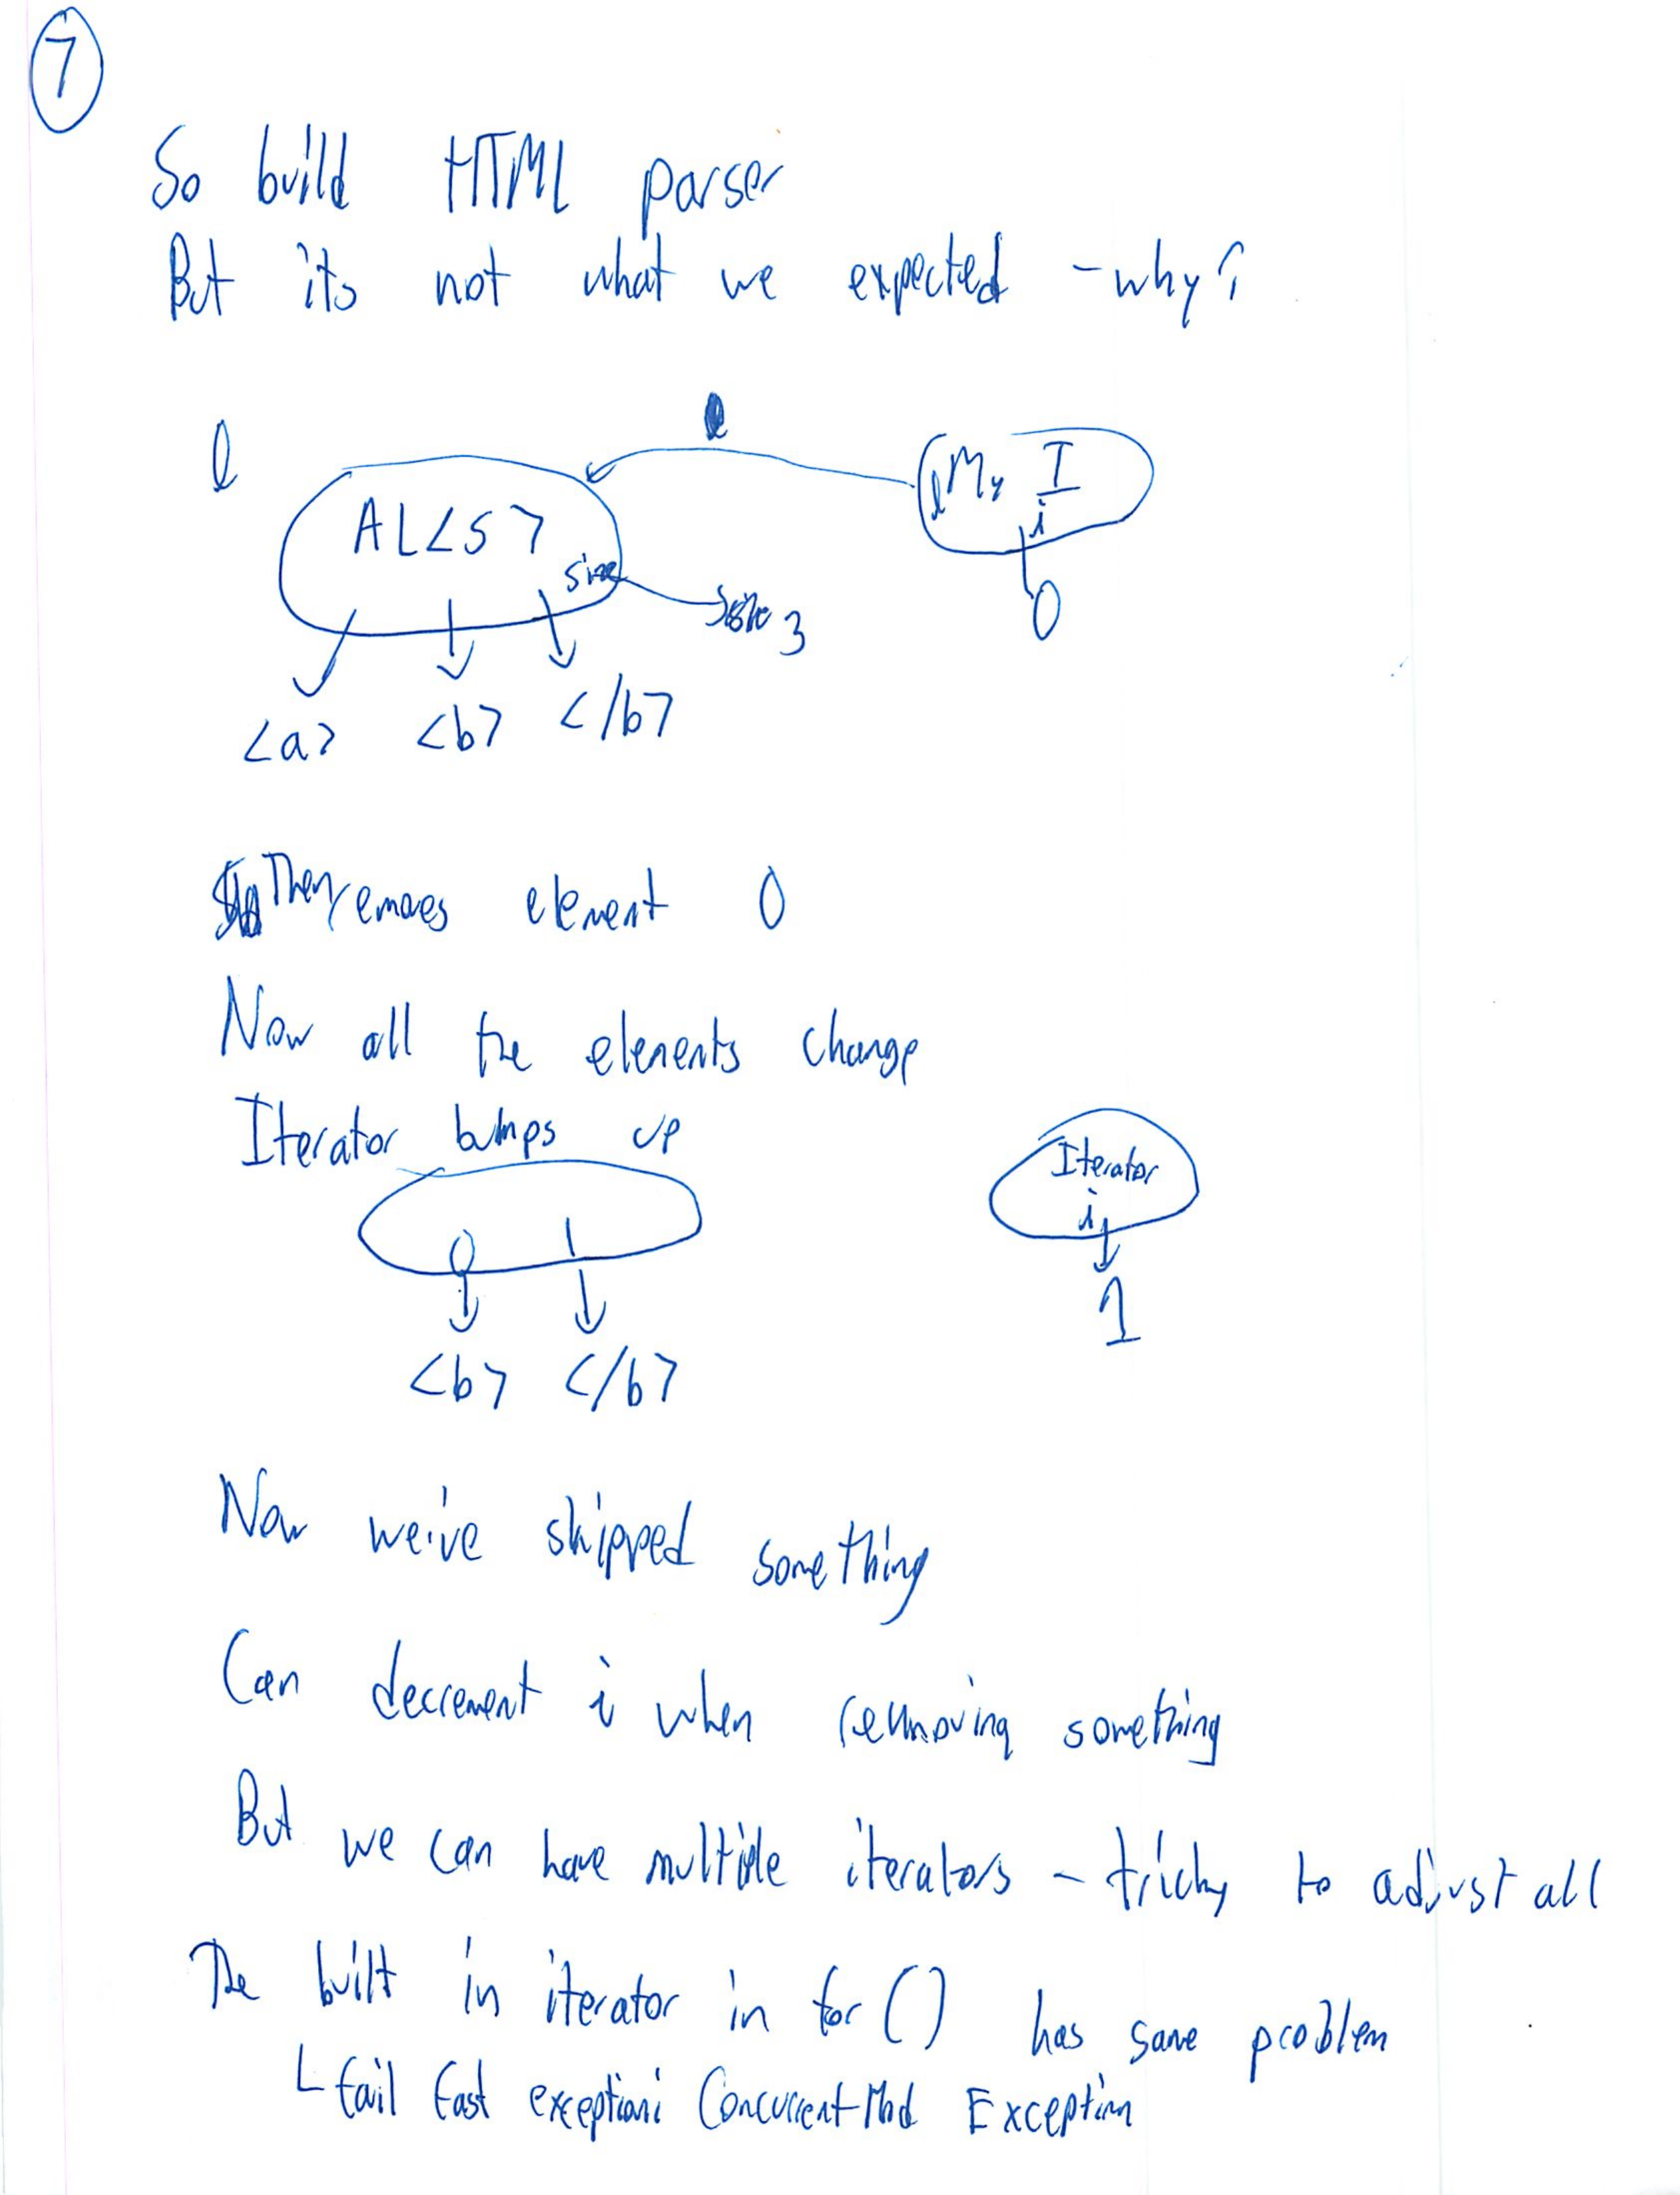 7
So build HTML parser
But its not what we expected - why?
l
AL<S>
size
3
l My I
i
0
<a> <b> </b>
Then removes element 0
Now all the elements change
Iterator bumps up
Iterator
i
0 1
1
<b> </b>
Now we've skipped something
Can decrement i when removing something
But we can have multiple iterators - tricky to adjust all
The built in iterator in for () has same problem
fail fast exception: Concurrent Mod Exception